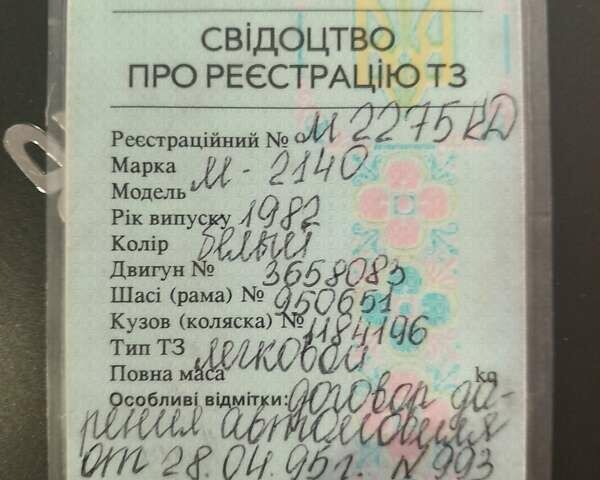 СВІДОЦТВО
ПРО РЕЄСТРАЦІЮ ТЗ
Реєстраційний № о М 2275 КД
Марка М-2140
Модель
Рік випуску 1982
Колір белый
Двигун № 3658083
Шасі (рама) № 950651
Кузов (коляска) № 1184196
Тип ТЗ легковой
Повна маса kg
Особливі відмітки: договор да-
рения автомобиля
от 28.04.95г. N 993